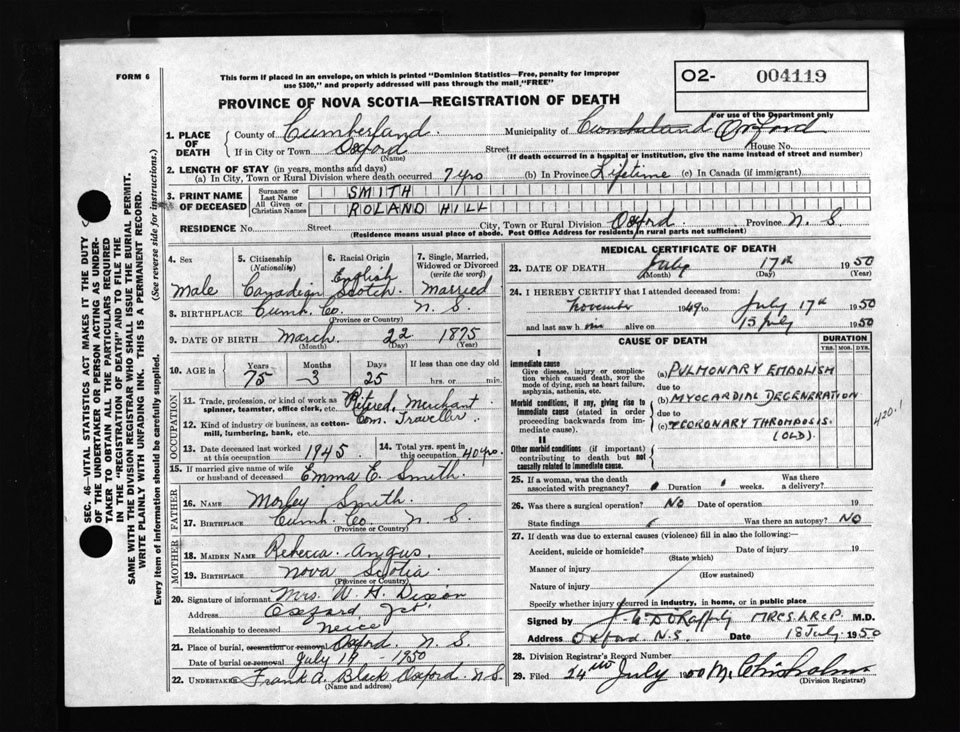 FORM 6
This form if placed in an envelope, on which is printed "Dominion Statistics—Free, penalty for improper
use $300," and properly addressed will pass through the mail "FREE"
O2- 004119
For use of the Department only
PROVINCE OF NOVA SCOTIA—REGISTRATION OF DEATH
1. PLACE OF DEATH
County of Cumberland Municipality of Cumberland Oxford
If in City or Town Oxford Street House No.
(Name) (If death occurred in a hospital or institution, give the name instead of street and number)
2. LENGTH OF STAY (in years, months and days)
(a) In City, Town or Rural Division where death occurred 7 yrs (b) In Province Lifetime (c) In Canada (if immigrant)
3. PRINT NAME OF DECEASED
Surname or Last Name SMITH
All Given or Christian Names ROLAND HILL
RESIDENCE No. Street City, Town or Rural Division Oxford Province N. S.
(Residence means usual place of abode. Post Office Address for residents in rural parts not sufficient)
SEC. 46—VITAL STATISTICS ACT MAKES IT THE DUTY
OF THE UNDERTAKER OR PERSON ACTING AS UNDER-
TAKER TO OBTAIN ALL THE PARTICULARS REQUIRED
IN THE "REGISTRATION OF DEATH" AND TO FILE THE
SAME WITH THE DIVISION REGISTRAR WHO SHALL ISSUE THE BURIAL PERMIT.
WRITE PLAINLY WITH UNFADING INK. THIS IS A PERMANENT RECORD.
Every item of information should be carefully supplied. (See reverse side for instructions.)
4. Sex
Male
5. Citizenship
(Nationality)
Canadian
6. Racial Origin
English
Scotch
7. Single, Married,
Widowed or Divorced
(write the word)
Married
8. BIRTHPLACE Cumb. Co. N. S.
(Province or Country)
9. DATE OF BIRTH March 22 1875
(Month) (Day) (Year)
10. AGE in Years Months Days If less than one day old
75 -3 25 hrs. or min.
OCCUPATION
11. Trade, profession, or kind of work as
spinner, teamster, office clerk, etc. Retired Merchant
12. Kind of industry or business, as cotton-
mill, lumbering, bank, etc. Com. Traveller
13. Date deceased last worked
at this occupation 1945
14. Total yrs. spent in
this occupation 40 yrs.
15. If married give name of wife
or husband of deceased Emma E. Smith
FATHER
16. NAME Morley Smith.
17. BIRTHPLACE Cumb. Co. N. S.
(Province or Country)
MOTHER
18. MAIDEN NAME Rebecca Angus.
19. BIRTHPLACE Nova Scotia
(Province or Country)
20. Signature of informant Mrs. W. H. Dixon
Address Oxford Jct.
Relationship to deceased neice
21. Place of burial, cremation or removal Oxford. N. S.
Date of burial or removal July 19 - 1950
22. UNDERTAKER Frank A. Black Oxford. N.S.
(Name and address)
MEDICAL CERTIFICATE OF DEATH
23. DATE OF DEATH July 17th 1950
(Month) (Day) (Year)
24. I HEREBY CERTIFY that I attended deceased from:
November 1949 to July 17th 1950
and last saw him alive on 15 July 1950
CAUSE OF DEATH
DURATION
YRS. MOS. DYS.
I
Immediate cause
Give disease, injury or complica-
tion which caused death, NOT the
mode of dying, such as heart failure,
asphyxia, asthenia, etc.
(a) PULMONARY EMBOLISM
due to
Morbid conditions, if any, giving rise to
immediate cause (stated in order
proceeding backwards from im-
mediate cause).
(b) MYOCARDIAL DEGENERATION
due to
(c) CORONARY THROMBOSIS.
(OLD).
420.1
II
Other morbid conditions (if important)
contributing to death but not
causally related to immediate cause.
25. If a woman, was the death
associated with pregnancy? Duration weeks. Was there
a delivery?
26. Was there a surgical operation? NO Date of operation 19
State findings Was there an autopsy? NO
27. If death was due to external causes (violence) fill in also the following:—
Accident, suicide or homicide? Date of injury 19
(State which)
Manner of injury
(How sustained)
Nature of injury
Specify whether injury occurred in industry, in home, or in public place
Signed by MRCS LRCP. M.D.
Address Oxford N.S. Date 18 July 1950
28. Division Registrar's Record Number
29. Filed 24th July 1950 M. Chisholm
(Division Registrar)